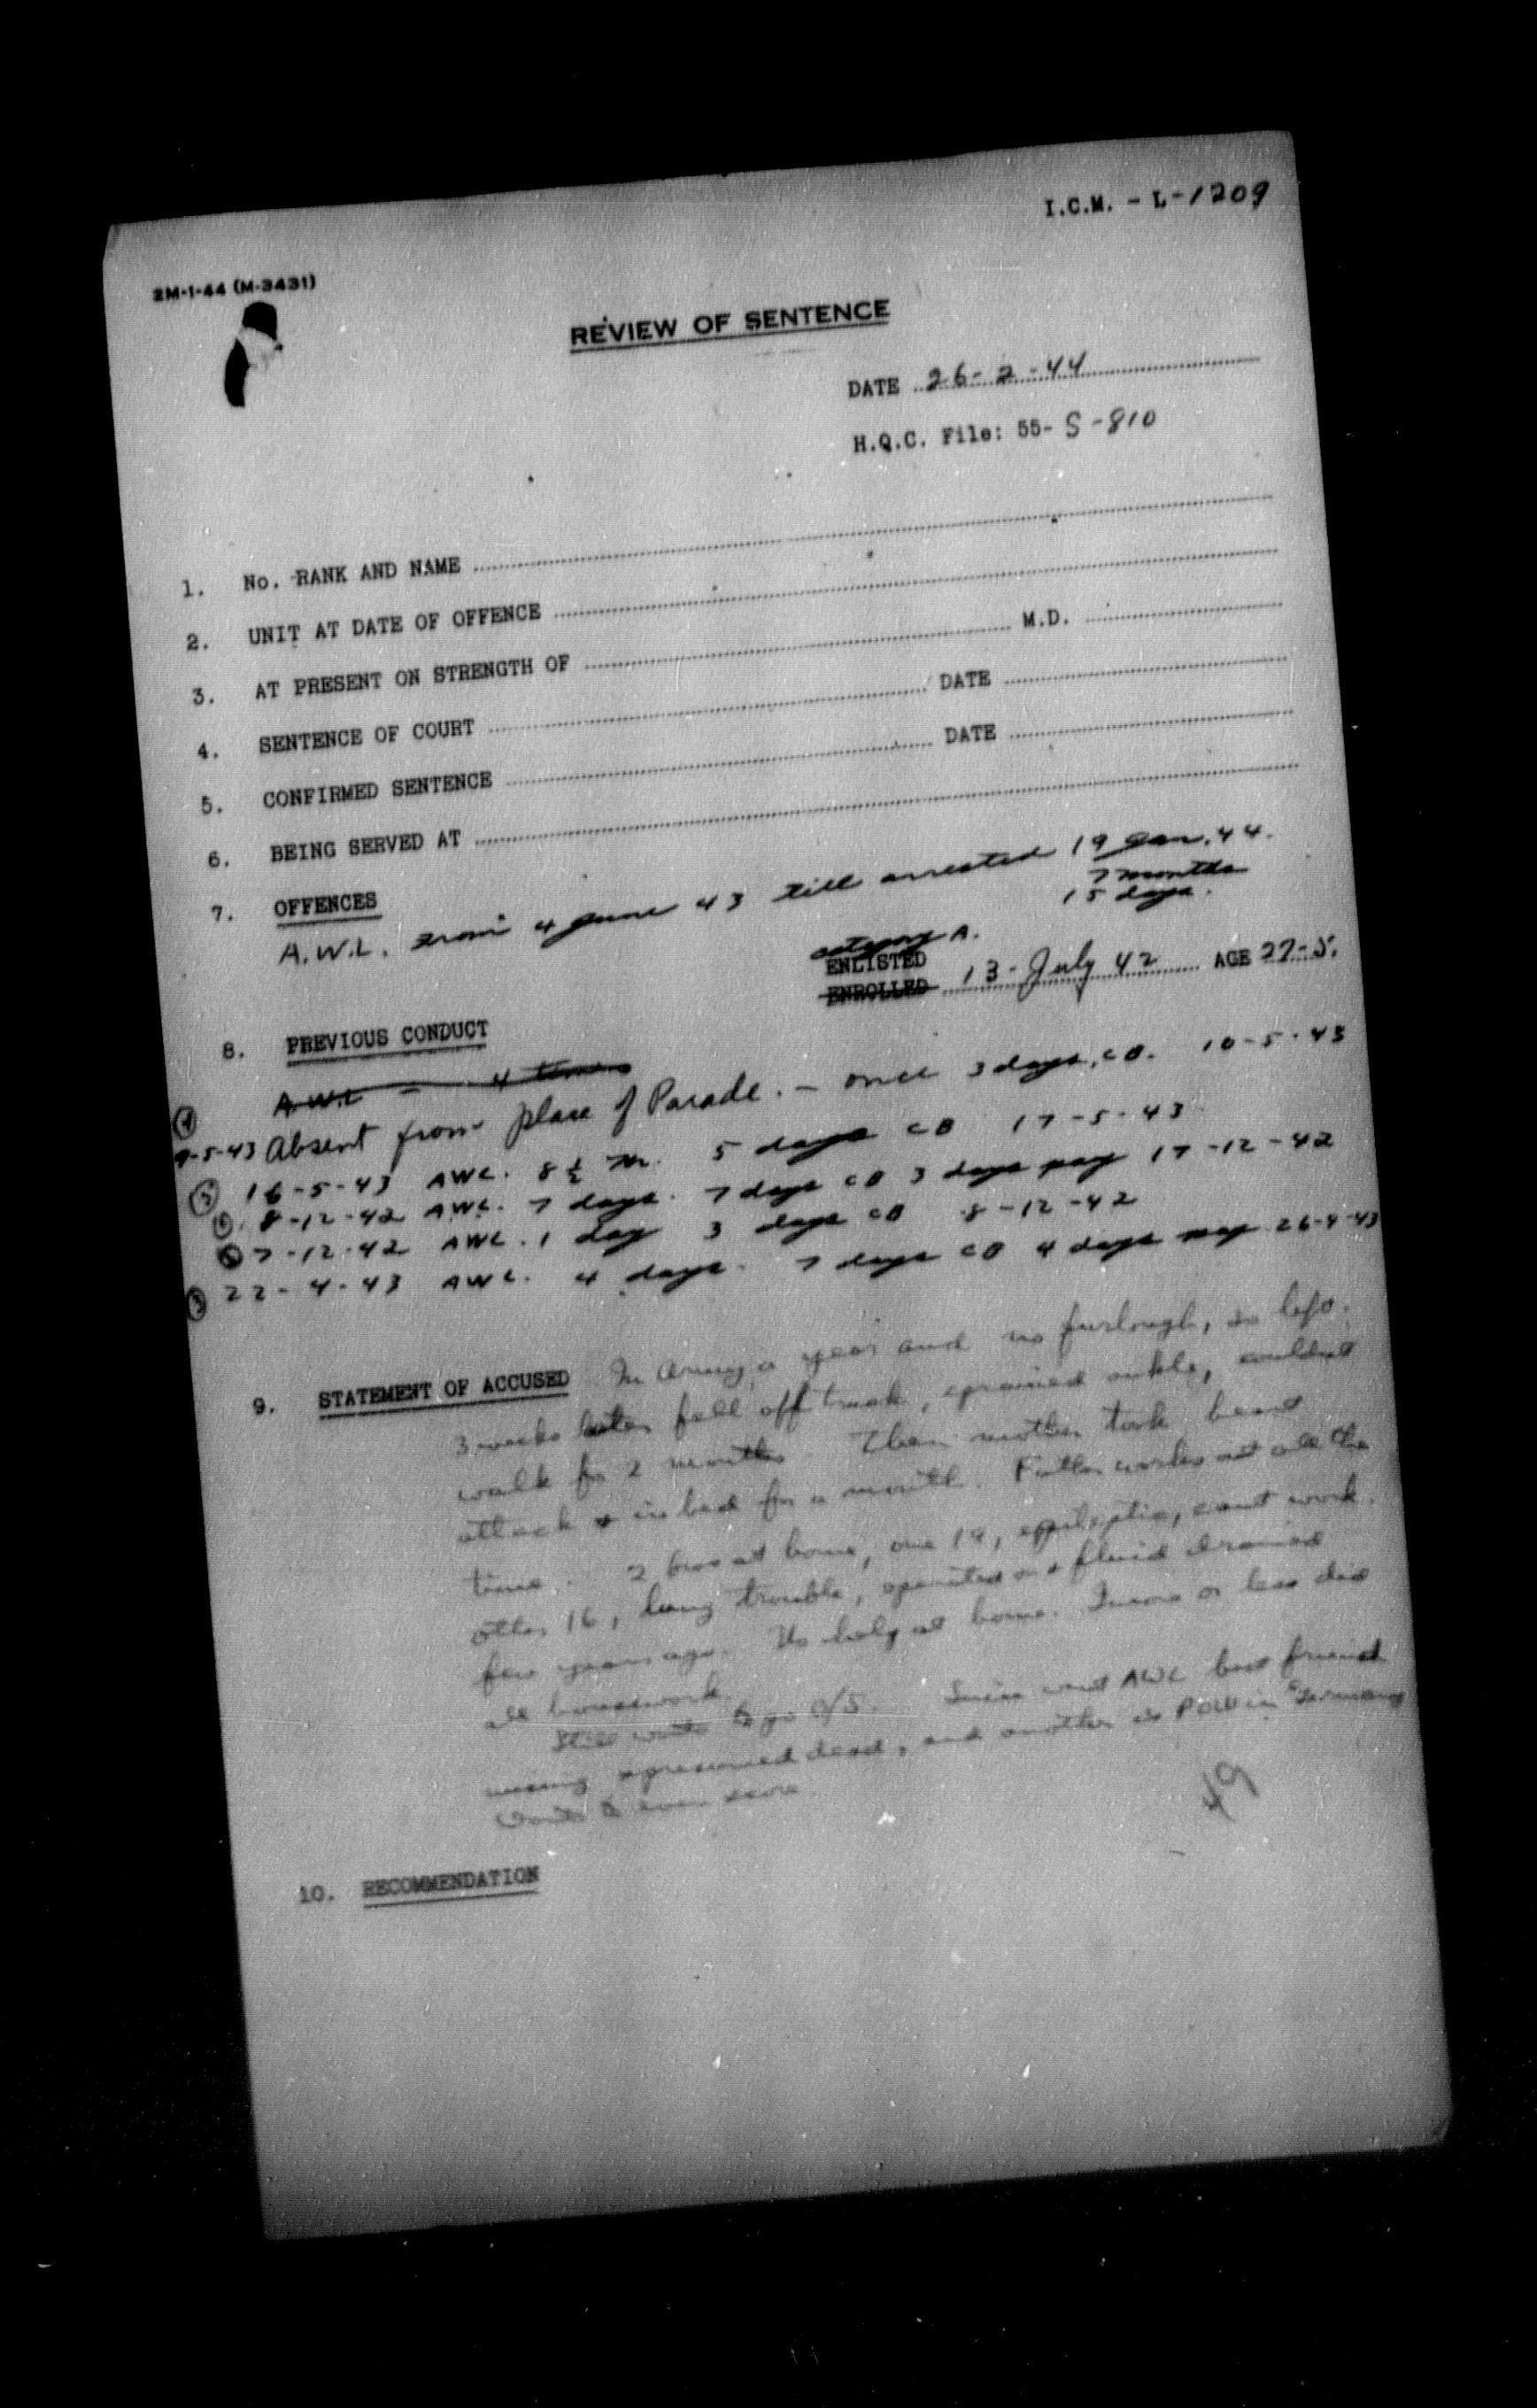 I.C.M. - L-1209
2M-1-44 (M-3431)
REVIEW OF SENTENCE
DATE 26-2-44
H.Q.C. File: 55- S-810
1. No. RANK AND NAME
2. UNIT AT DATE OF OFFENCE
3. AT PRESENT ON STRENGTH OF M.D.
4. SENTENCE OF COURT DATE
5. CONFIRMED SENTENCE DATE
6. BEING SERVED AT
7. OFFENCES
A.W.L. from 4 June 43 till arrested 19 Jan. 44.
7 months
15 days.
category A.
ENLISTED
ENROLLED 13-July 42 AGE 27-5.
8. PREVIOUS CONDUCT
A.W.L - 4 times
9-5-43 Absent from place of Parade. - once 3 days. CB. 10-5-43
16-5-43 AWL. 8½ hr. 5 days CB 17-5-43
8-12-42 AWL. 7 days. 7 days CB 3 days pay 17-12-42
7-12-42 AWL. 1 day 3 days CB 8-12-42
22-4-43 AWL. 4 days. 7 days CB 4 days pay 26-4-43
9. STATEMENT OF ACCUSED In Army a year and no furlough, so left.
3 weeks later fell off truck, sprained ankle, couldnt
walk for 2 months. Then mother took heart
attack & in bed for a month. Father works out all the
time. 2 bros at home, one 19, epileptic, cant work.
other 16, lung trouble, operated on & fluid drained
few years ago. No help at home. more or less did
all housework.
Still wants to go O/S. Since went AWL best friend
missing & presumed dead, and another is POW in Germany
Wants to even score
49
10. RECOMMENDATION